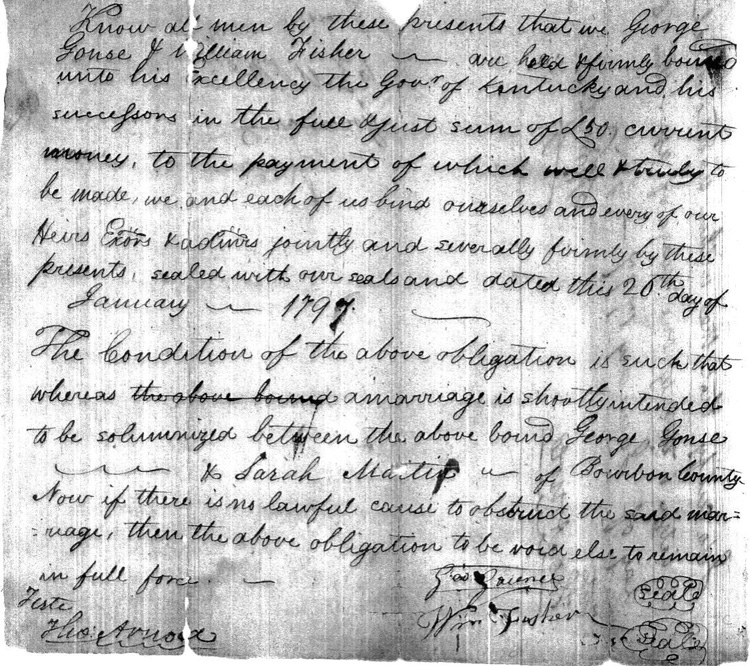 Know all men by these presents that we George
Gonse & William Fisher are held & firmly bound
unto his Excellency the Govr. of Kentucky and his
successors in the full & just sum of £50 current
money, to the payment of which well & truly to
be made, we and each of us bind ourselves and every of our
Heirs Exors & admrs jointly and severally firmly by these
presents, sealed with our seals and dated this 26th day of
January 1797.
The Condition of the above obligation is such that
whereas the above bound a marriage is shortly intended
to be solumnized between the above bound George Gonse
& Sarah of Bourbon County
Now if there is no lawful cause to obstruct the said mar=
=riage, then the above obligation to be void else to remain
in full force.
Geo
Wm Fisher
Seale
Seale
Teste
Tho: Arnold